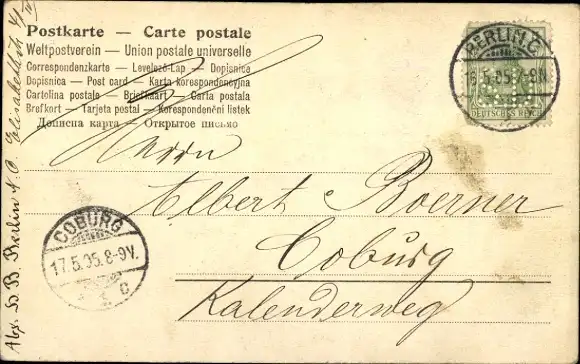 Postkarte — Carte postale
Weltpostverein — Union postale universelle
Correspondenzkarte — Levelező-Lap — Dopisnice
Dopisnica — Post card — Karta korespondencyjna
Cartolina postale — Briefkaart — Carta postala
Brefkort — Tarjeta postal — Korespondenční listek
Дописна карта — Открытое письмо
BERLIN.C.
16.5.05.7-8N
DEUTSCHES REICH
Herrn
Albert Boerner
Coburg
Kalenderweg
COBURG
17.5.05.8-9V.
Berlin N. O. Elisabethstr.